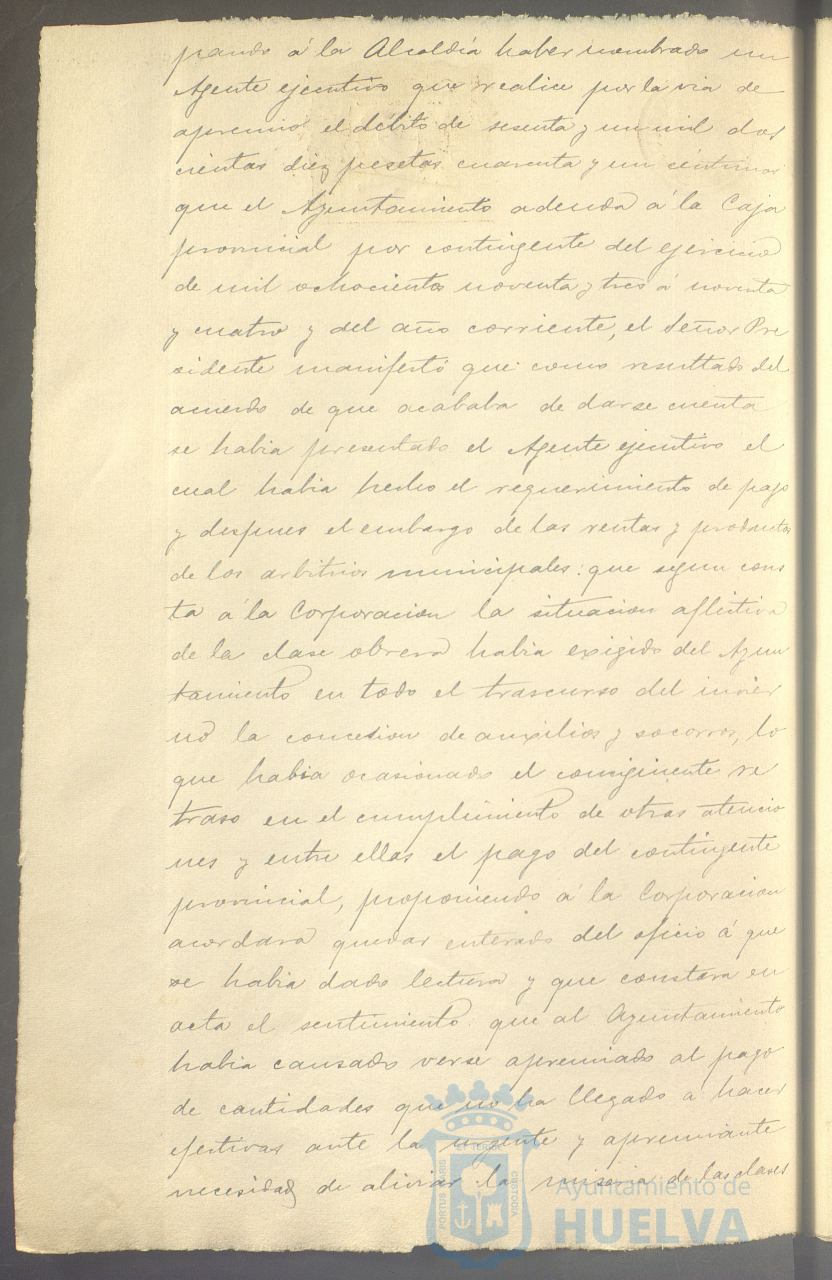 pando á la Alcaldía haber nombrado un
Agente ejecutivo que realice por la via de
apremio el débito de sesenta y un mil dos
cientas diez pesetas cuarenta y un céntimos
que el Ayuntamiento adeuda á la Caja
provincial por contingente del ejercicio
de mil ochocientos noventa y tres á noventa
y cuatro y del año corriente, el Señor Pre
sidente manifestó que como resultado del
acuerdo de que acababa de darse cuenta
se habia presentado el Agente ejecutivo el
cual habia hecho el requerimiento de pago
y despues el embargo de las rentas y productos
de los arbitrios municipales: que segun cons
ta á la Corporacion la situacion aflictiva
de la clase obrera habia exigido del Ayun
tamiento en todo el trascurso del invier
no la concesion de auxilios y socorros, lo
que habia ocasionado el consiguiente re
traso en el cumplimiento de otras atencio
nes y entre ellas el pago del contingente
provincial, proponiendo á la Corporacion
acordara quedar enterado del oficio á que
se habia dado lectura y que constara en
acta el sentimiento que al Ayuntamiento
habia causado verse apremiado al pago
de cantidades que no ha llegado a hacer
efectivas ante la urgente y apremiante
necesidad de aliviar la miseria de las clases
PORTUS MARIS
ET TERRAE
CUSTODIA
Ayuntamiento de
HUELVA